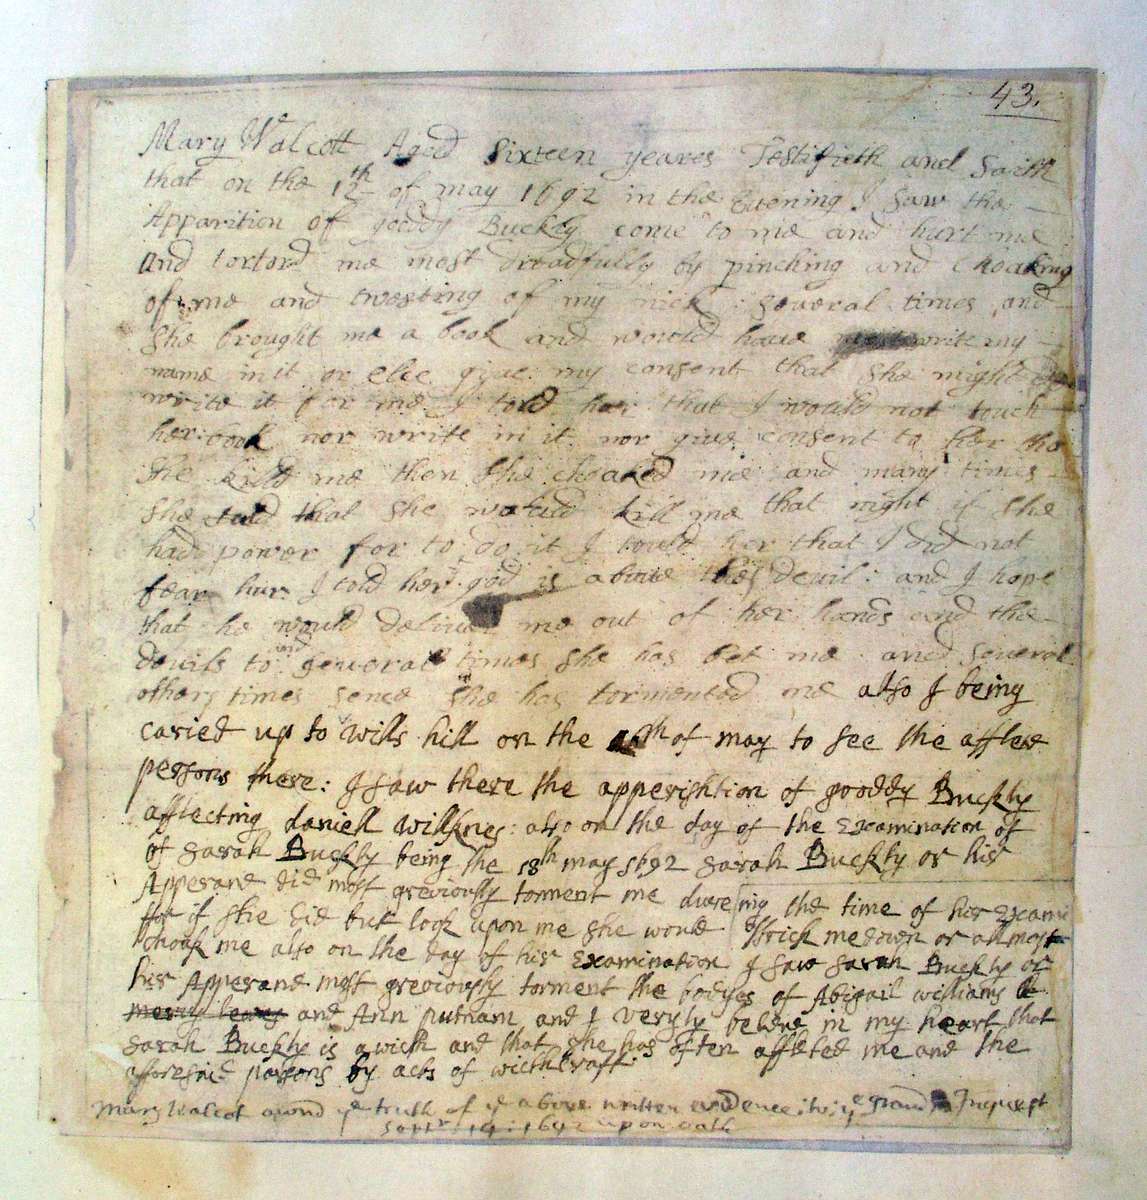 43.
Mary Walcott Aged Sixteen yeares Testifieth and Saith
that on the 12th of may 1692 in the Evening I Saw the
Apparition of gooddy Buckly come to me and hurt me
and tortord me most dreadfully by pinching and Choaking
of me and twesting of my nick Several times and
She brought me a book and would have write my
name in it or else give my consent that She might
write it for me I told her that I would not touch
her book nor write in it nor give consent to her tho
She kild me then She choaked me and many times
She told that She would kill me that night if She
had power for to do it I tould her that I did not
fear hur I told her god is aboue the devil: and I hope
that he would deliver me out of her hands and the
devils to and several times She has bet me and Several
others times sence She has tormented me also I being
caried up to Wills hill on the th of may to see the afflected
persons there: I saw there the apperishtion of gooddy Buckly
afflecting daniell willknes: also on the day of the Examination of
of Sarah Buckly being the 18th may 1692 Sarah Buckly or hir
Apperance did most greviously torment me dureing the time of hir Exami
for if She did but look upon me She would Strick me down or allmost
choak me also on the day of hir Examination I saw Sarah Buckly or
hir Apperance most greviously torment the bodyes of Abigail williams
and Ann putnam and I veryly beleve in my heart that
Sarah Buckly is a wicth and that she has often afflected me and the
afforesaid parsons by acts of wicthcraft
Mary Walcot ownd ye truth of ye above written evidence: to ye Grand Inquest
Septr 14: 1692 upon oath